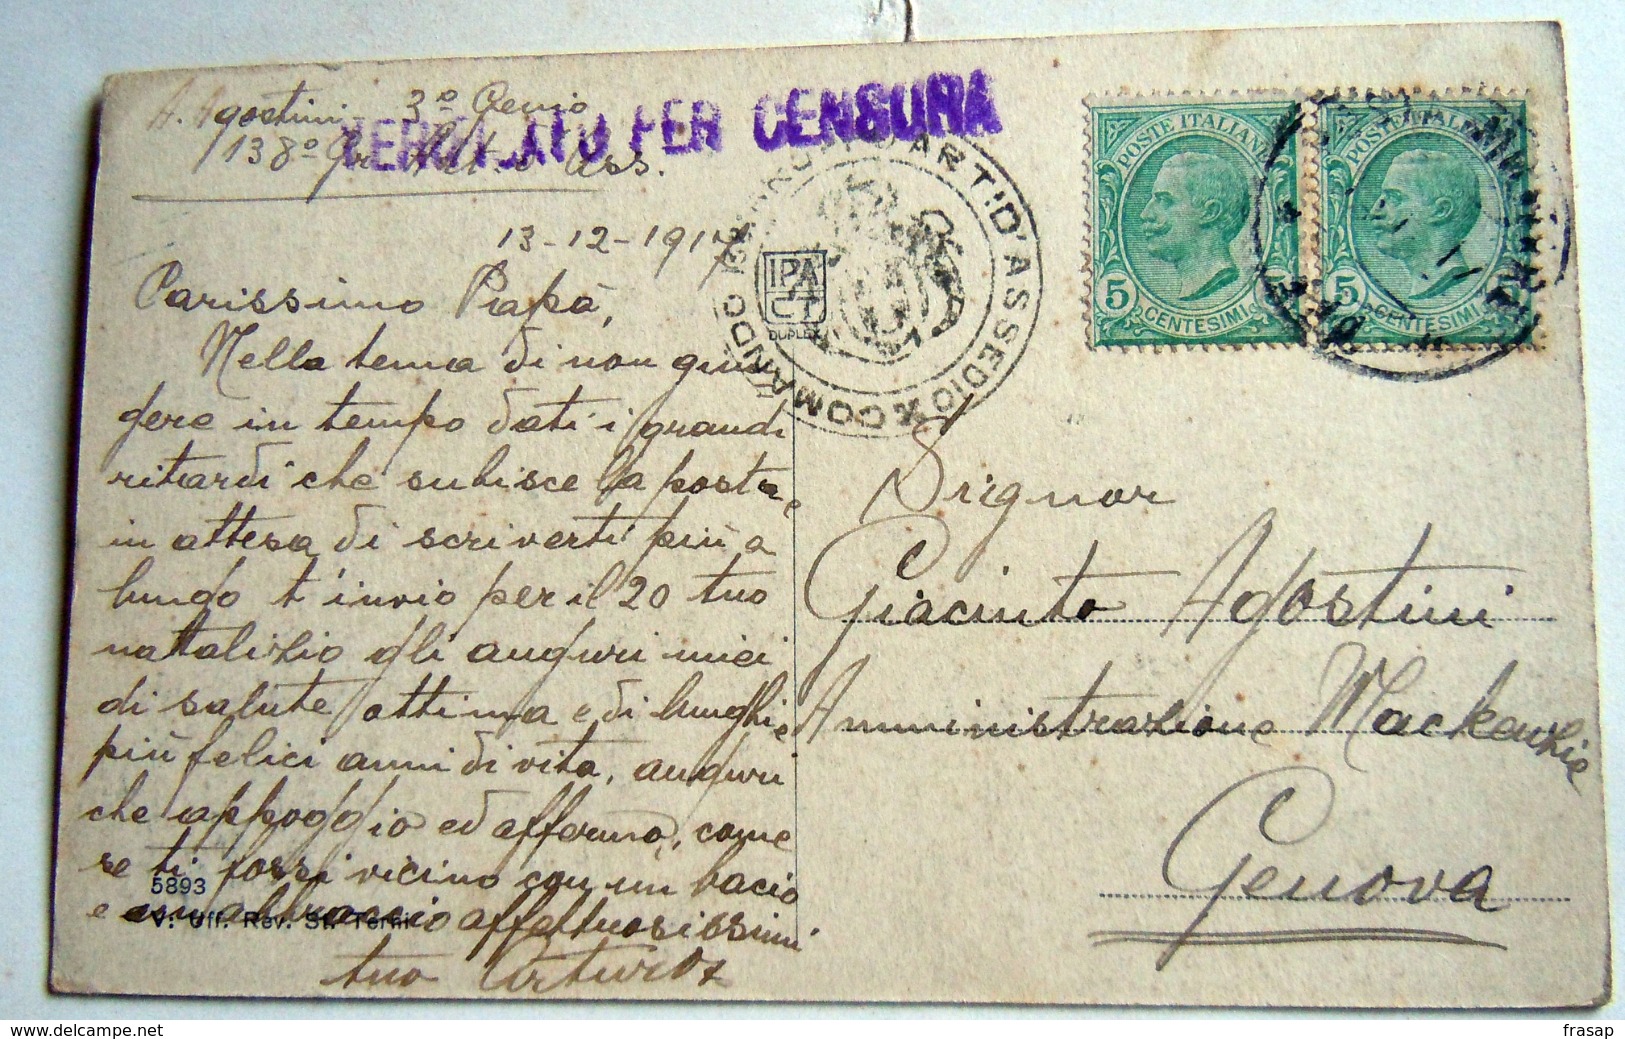 A. Agostini 3º Genio
138º Gr. Art. Ass.
VERIFICATO PER CENSURA
13-12-1917
COMANDO D'ART. D'ASSEDIO
IPA
CT
DUPLEX
POSTE ITALIANE
5 CENTESIMI
POSTE ITALIANE
5 CENTESIMI
Carissimo Papà,
Nella tema di non giun
gere in tempo dati i grandi
ritardi che subisce la posta e
in attesa di scriverti più a
lungo t'invio per il 20 tuo
natalizio gli auguri miei
di salute ottima e di lunghi e
più felici anni di vita, auguri
che appoggio ed affermo, come
se ti fossi vicino con un bacio
e un abbraccio affettuosissimi
tuo Arturo
Signor
Giacinto Agostini
Amministrazione Mackenzie
Genova
5893
V. Uff. Rev. St. Terni
frasap